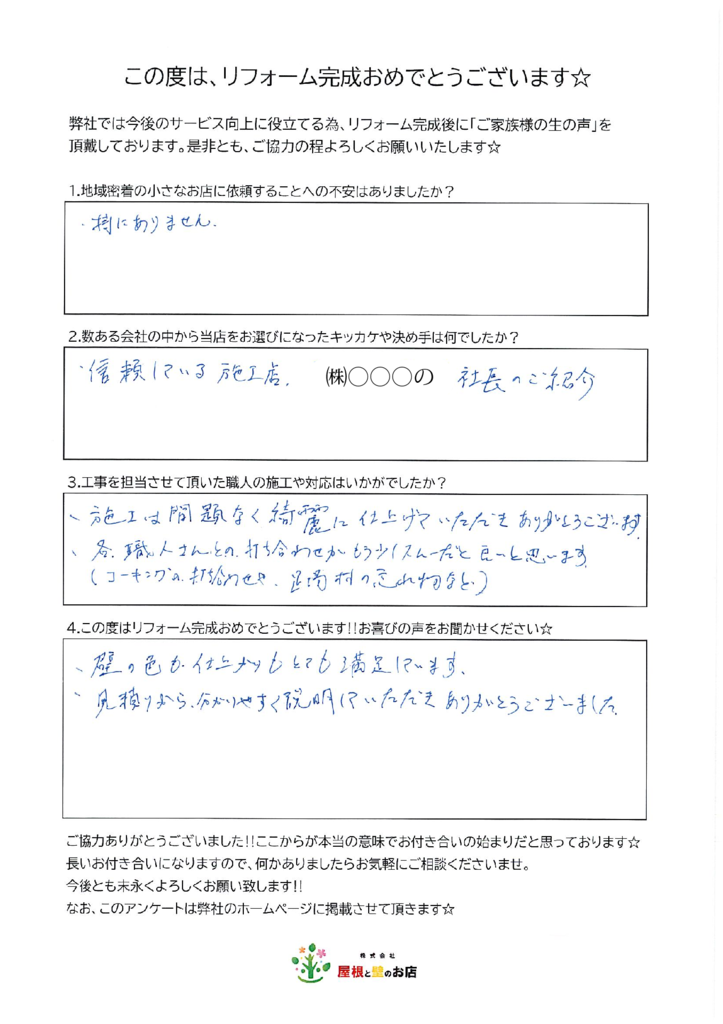 この度は、リフォーム完成おめでとうございます☆
弊社では今後のサービス向上に役立てる為、リフォーム完成後に「ご家族様の生の声」を
頂戴しております。是非とも、ご協力の程よろしくお願いいたします☆
1.地域密着の小さなお店に依頼することへの不安はありましたか？
・特にありません.
2.数ある会社の中から当店をお選びになったキッカケや決め手は何でしたか？
・信頼している施工店. ㈱〇〇〇の 社長のご紹介
3.工事を担当させて頂いた職人の施工や対応はいかがでしたか？
、施工は間題なく綺麗に仕上げていただきありがとうございます.
、各職人さんとの打ち合わせがもう少しスムーだと良いと思います
(コーキングの打合わせや、足場材の忘れ物など)
4.この度はリフォーム完成おめでとうございます!!お喜びの声をお聞かせください☆
、壁の色も仕上がりもとても満足しています、
、見積りから、分かりやすく説明していただきありがとうございました.
ご協力ありがとうございました!!ここからが本当の意味でお付き合いの始まりだと思っております☆
長いお付き合いになりますので、何かありましたらお気軽にご相談くださいませ。
今後とも末永くよろしくお願い致します!!
なお、このアンケートは弊社のホームページに掲載させて頂きます☆
株式会社
屋根と壁のお店